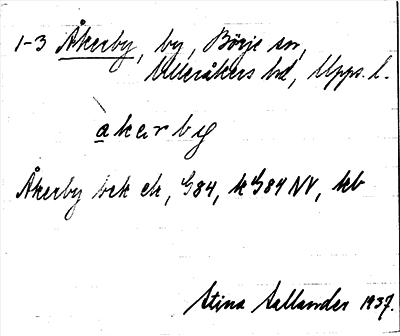 1-3 Åkerby, by, Börje sn,
Ulleråkers hd, Upps. l.
àkerby
Åkerby bek ek, G84, k G84 NV, kb
Stina Sallander 1937.